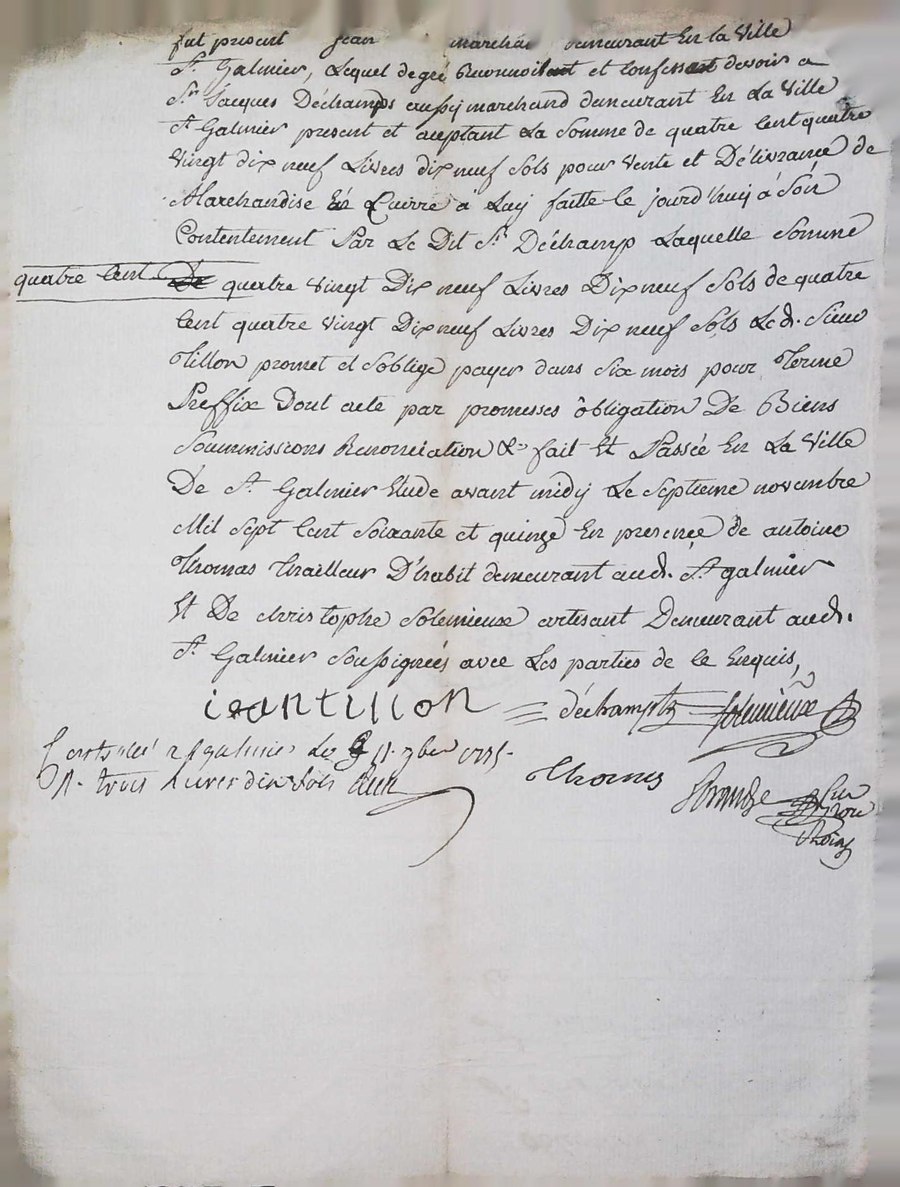 fut present jean marchand demeurant En la Ville
St. Galmier, Lequel degré Reconnoissant et Confessant devoir a
Sr. Jacques Déchamps aussy marchand demeurant En La Ville
St Galmier present et aceptant La Somme de quatre Cent quatre
Vingt dix neuf Livres dix neuf Sols pour Vente et Délivrance de
Marchandise En Cuirre à Luy faitte le jourd'huy à Son
Contentement Par Le Dit Sr. Déchamp Laquelle Somme
quatre Cent
De quatre Vingt Dix neuf Livres Dix neuf Sols de quatre
Cent quatre Vingt Dix neuf Livres Dix neuf Sols Led. Sieur
Tillon promet et Soblige payer dans Six mois pour Terme
Preffix Dont acte par promesses obligation De Biens
Soummissions Renonciation &c fait Et Passée En La Ville
De St. Galmier Etude avant midy Le Septieme novembre
Mil Sept Cent Soixante et quinze En presence de antoine
Thomas Tailleur D'habit demeurant aud. St galmier
Et De christophe Solemieux artisant Demeurant aud.
St. Galmier Soussignées avec Les parties de Ce Enquis,
ieantillon déchamps Solemieux
galmier Le 9bre 1775
Rt. trois Livres dix Sols
Thomas